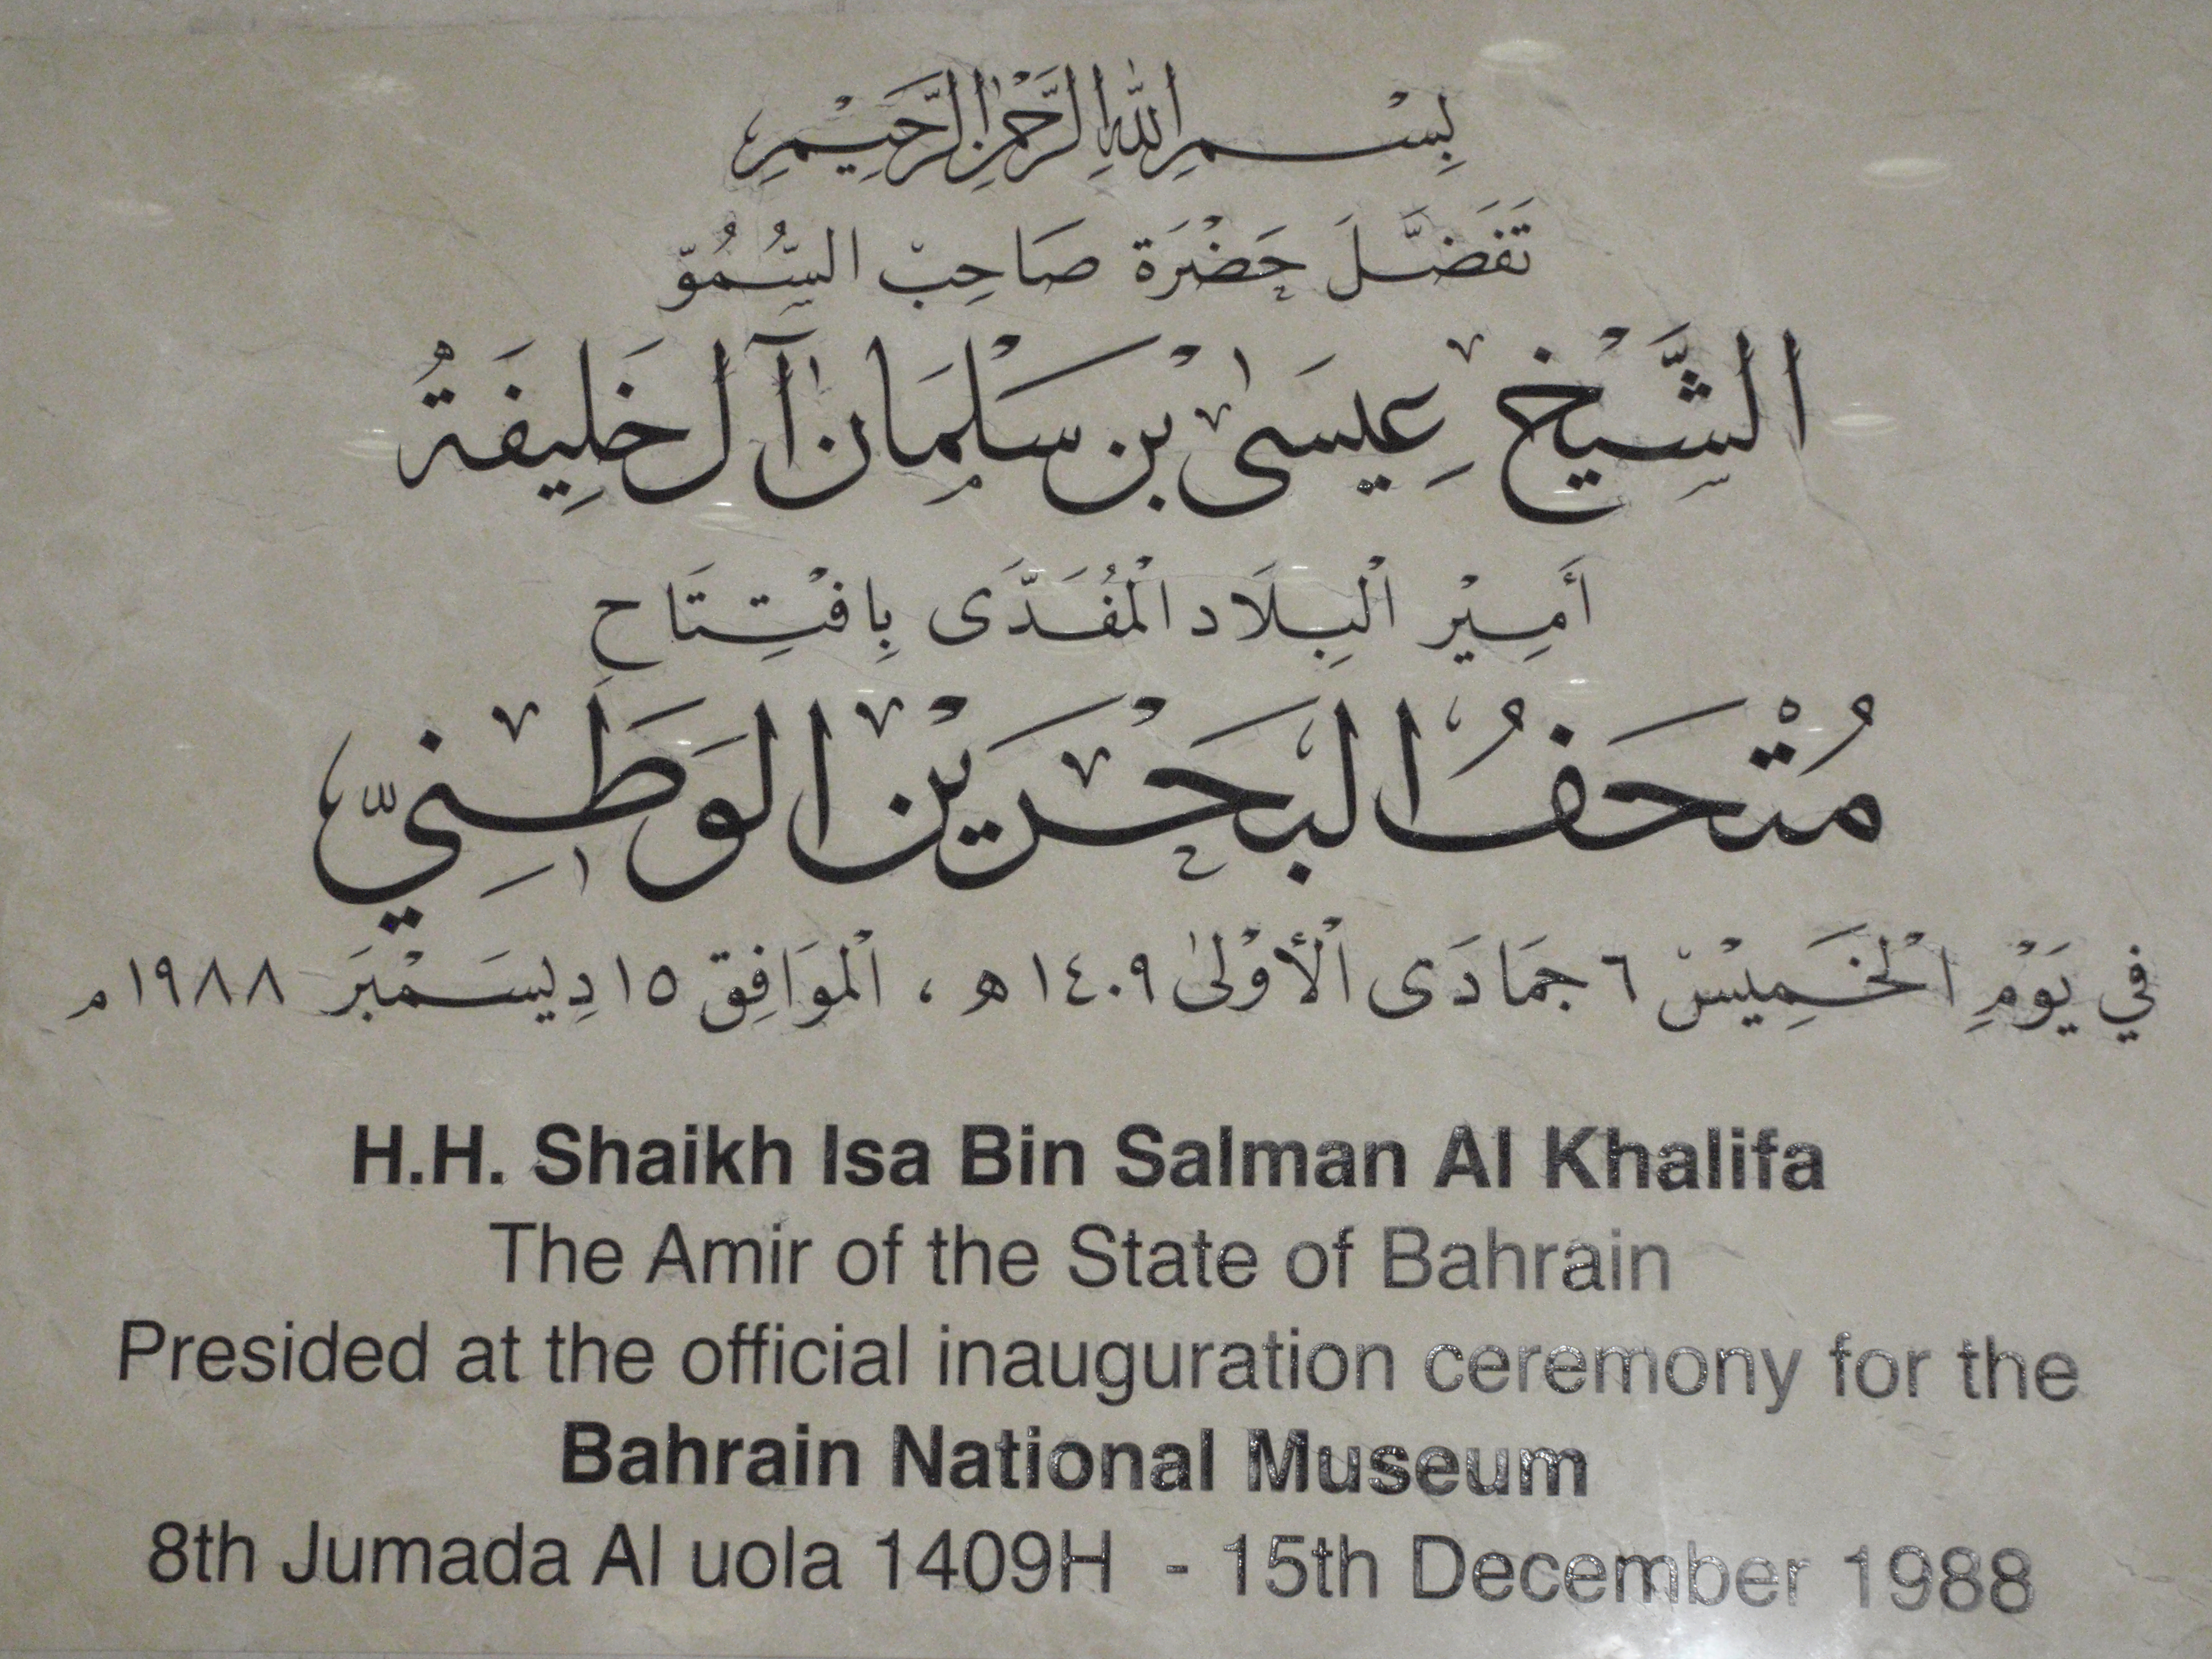 بِسْمِ اللهِ الرَّحْمٰنِ الرَّحِيْمِ
تَفَضَّلَ حَضْرَة صَاحِبْ السُّمُوّ
الشَّيْخ عِيسَىٰ بْن سَلْمَان آل خَلِيفَةُ
أَمِيْر الْبِلَاد الْمُفَدَّى بِافْتِتَاح
مُتْحَفُ البَحْرَيْن الوَطَنِيّ
في يَوْمِ الْخَمِيْس ٦ جمَادَى الْأُوْلىٰ ١٤٠٩ هـ ، الْموَافِق ١٥ دِيسَمْبَر ١٩٨٨ م
H.H. Shaikh Isa Bin Salman Al Khalifa
The Amir of the State of Bahrain
Presided at the official inauguration ceremony for the
Bahrain National Museum
8th Jumada Al uola 1409H - 15th December 1988